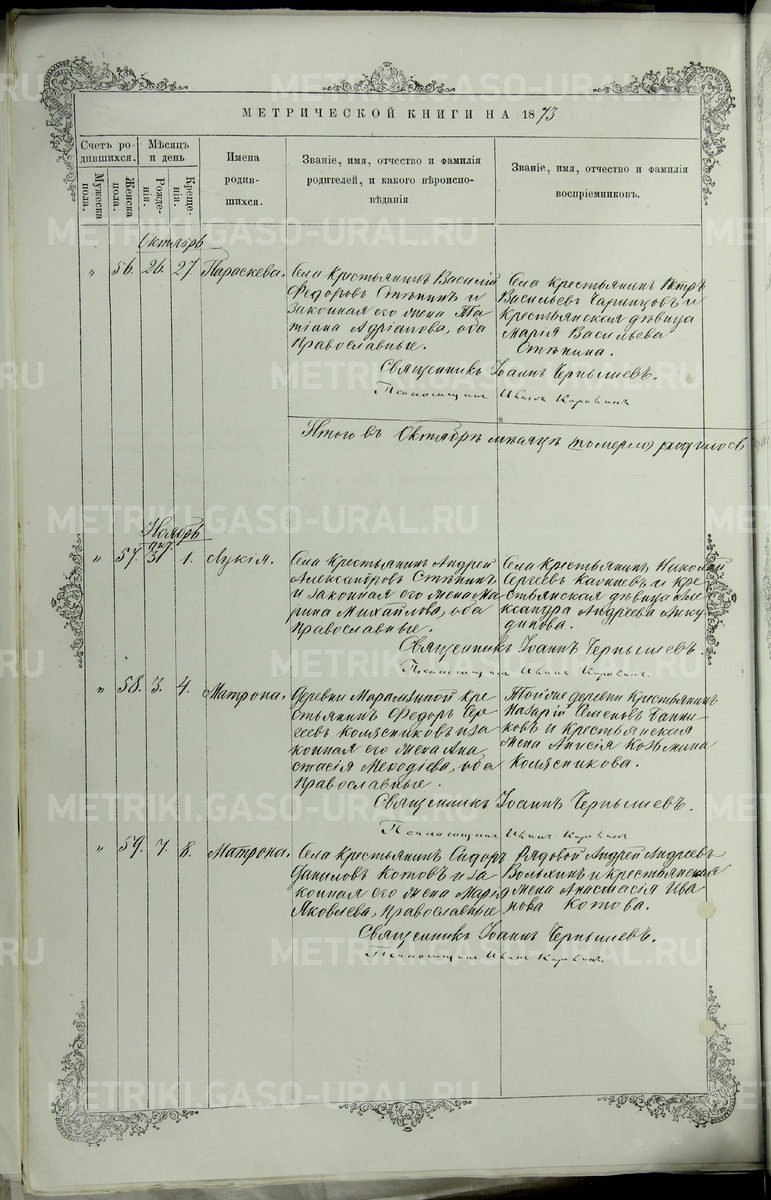 МЕТРИЧЕСКОЙ КНИГИ НА 1873
Счетъ ро-
дившихся.
Мѣсяцъ
и день
Мужеска
пола.
Женска
пола.
Рожде-
нія.
Креще-
нія.
Имена
родив-
шихся.
Званіе, имя, отчество и фамилія
родителей, и какого вѣроиспо-
вѣданія
Званіе, имя, отчество и фамилія
воспріемниковъ.
Октябрь
" 56. 26. 27 Параскева.
Села Крестьянинъ Василій
Федоровъ Стѣнинъ и
законная его жена Та
тіана Адріанова, оба
Православные.
Села Крестьянинъ Петръ
Васильевъ и
Крестьянская дѣвица
Марія Васильева
Стѣнина.
Священникъ Іоаннъ Чернышевъ.
Псаломщикъ Иванъ Коровинъ
Итого въ Октябрѣ мѣсяцѣ (померло) родилось
Ноябрь
окт.
" 57. 31 1. Лукія.
Села Крестьянинъ Андрей
Александровъ Стѣнинъ
и законная его жена Ма
рина Михайлова, оба
Православные.
Села Крестьянинъ Николай
Сергеевъ и Кре
стьянская дѣвица Але
ксандра Андреева Анку
динова.
Священникъ Іоаннъ Чернышевъ.
Псаломщикъ Иванъ Коровинъ.
" 58. 3. 4. Матрона.
Деревни Марамзиной Кре
стьянинъ Федоръ Сер
геевъ Колясниковъ и за
конная его жена Ана
стасія Меѳодіева, оба
Православные.
Тойже деревни Крестьянинъ
Назарій Семеновъ Банни
ковъ и Крестьянская
жена Анисія Козьмина
Колясникова.
Священникъ Іоаннъ Чернышевъ.
Псаломщикъ Иванъ Коровинъ
" 59. 7. 8. Матрона.
Села Крестьянинъ Сидоръ
Даниловъ Котовъ и за
конная его жена Марія
Яковлева, Православные
Рядовой Андрей Андреевъ
Волькинъ и крестьянская
жена Анастасія Ива
нова Котова.
Священникъ Іоаннъ Чернышевъ.
Псаломщикъ Иванъ Коровинъ.
METRIKI.GASO-URAL.RU